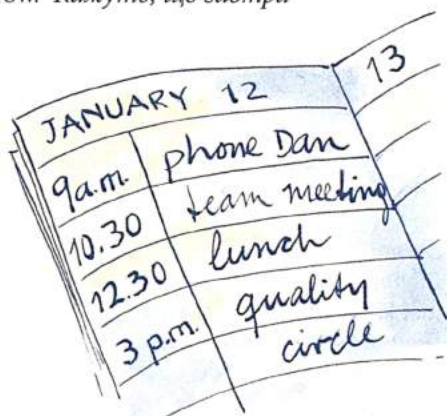 кажуть, що завтра
JANUARY 12
13
9a.m. phone Dan
10.30 team meeting
12.30 lunch
3 p.m. quality
circle